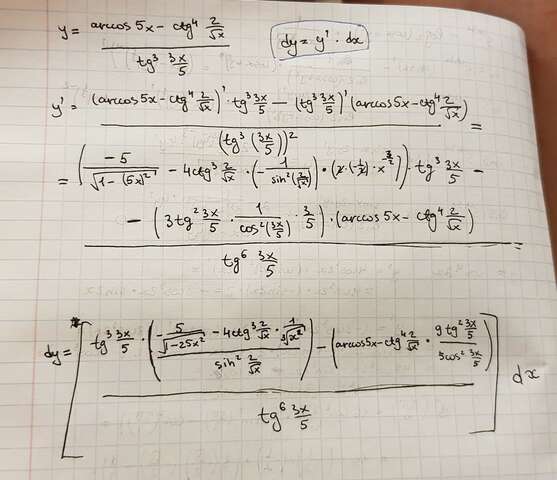 y = (arccos 5x − ctg⁴ 2/√x) / (tg³ 3x/5)
dy = y' · dx
y' = ((arccos 5x − ctg⁴ 2/√x)' · tg³ 3x/5 − (tg³ 3x/5)' (arccos 5x − ctg⁴ 2/√x)) / (tg³ (3x/5))² =
= ((−5/√(1 − (5x)²) − 4ctg³ 2/√x · (−1/sin²(2/√x)) · (2 · (−1/2) · x^(−3/2))) · tg³ 3x/5 −
− (3tg² 3x/5 · 1/cos²(3x/5) · 3/5) · (arccos 5x − ctg⁴ 2/√x)) / tg⁶ 3x/5 =
dy = [(tg³ 3x/5 · ((−5/√(−25x²) − 4ctg³ 2/√x · 1/³√x²) / sin² 2/√x) − (arccos 5x − ctg⁴ 2/√x · 9tg² 3x/5 / 5cos² 3x/5)) / tg⁶ 3x/5] dx